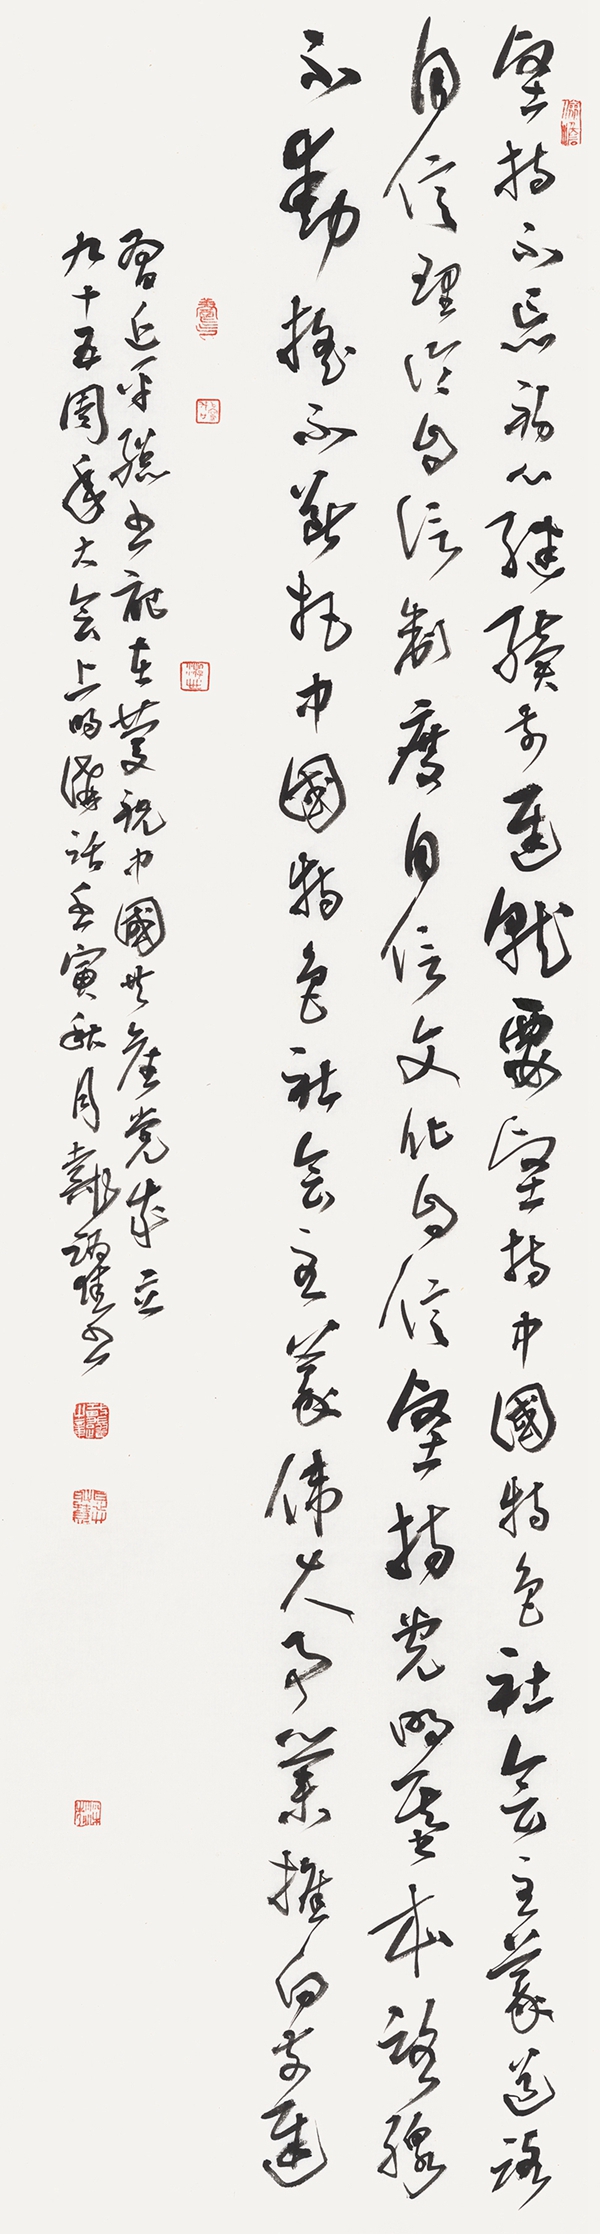 坚持不忘初心继续前进就要坚持中国特色社会主义道路
自信理论自信制度自信文化自信坚持党的基本路线
不动摇不断把中国特色社会主义伟大事业推向前进
习近平总书记在庆祝中国共产党成立
九十五周年大会上的讲话壬寅秋月戴跃书